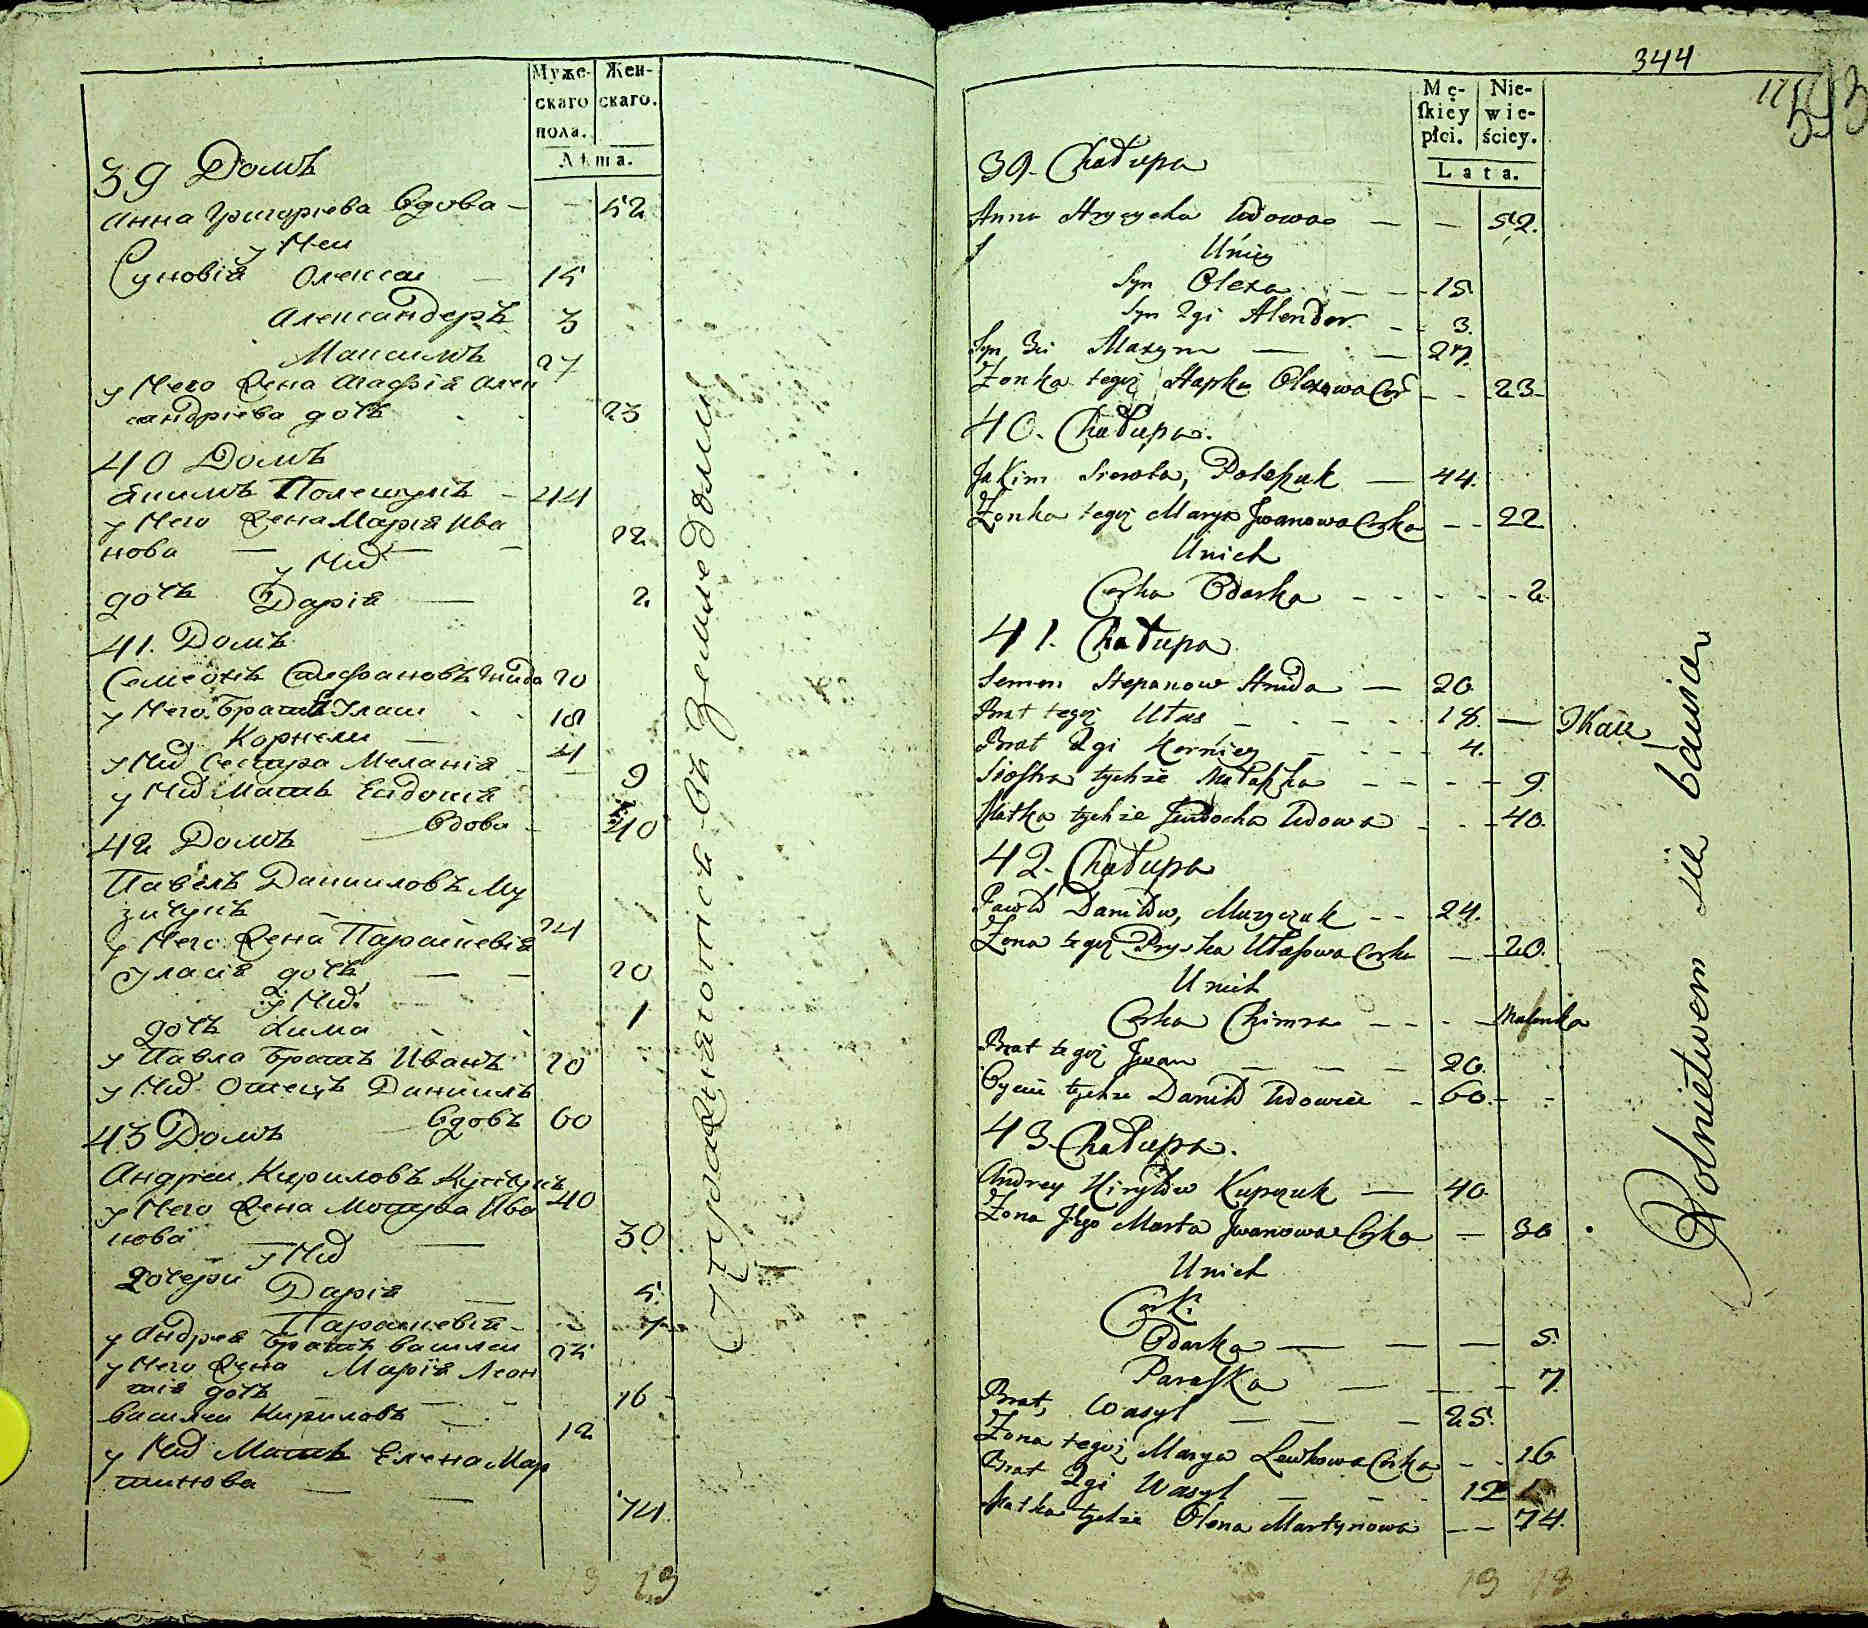 Муже-
скаго
пола.
Жен-
скаго.
Лѣта.
39 Домъ
Анна Григориева вдова – – 52
у Неи
Сыновія Олексаи – 15
Александеръ 3
Максимъ 27
у Него Жена Агафія Алек
сандріева дочь 23
40 Домъ
Якимъ Полещукъ – 44
у Него Жена Марія Ива
нова – – – 22
у Них
дочь Дарія – 2
41. Домъ
Семеонъ Стефановъ Гнида 20
у Него Братъ Улас 18
Корнели – 4
у Них Сестра Меланія – – 9
у Них Мать Евдокія
вдова – 40
42 Домъ
Павелъ Данииловъ Му
зичукъ – 24
у Него Жена Параскевія
Уласія дочь – – 20
у Них.
дочь Хима 1
у Павла Братъ Иванъ 20
у Них Отецъ Даниилъ
вдовъ 60
43 Домъ
Андреи Кириловъ Купчукъ 40
у Него Жена Мотрва Ива
нова – – 30
у Них
Дочери Дарія – 5.
Параскевія – 7
у Андрея Братъ Василеи 25
у Него Жена Марія Леон
тія дочь – – 16
Василеи Кириловъ – 12
у Них Мать Елена Мар
тинова – – 74.
Упражняются въ Земледелии
344
Mę-
ſkiéy
płci.
Nie-
wie-
ściey.
Lata.
39. Chałupa
Anna Hryćycha Wdowa – – 52.
U niey
Syn Olexa – – 15.
Syn 2gi Alexder. – – 3.
Syn 3ci Maxym – – 27.
Żonka tegoż Hapka Olexowa Cor – – 23
40. Chałupa.
Jakim Sierota, Poleszuk – 44.
Żonka tegoż Marya Jwanowa Corka – – 22
U nich
Corka Odarka – – – – – 2.
41. Chałupa
Semen Stepanow Hnida – 20
Brat tegoż Ułas – – – – 18. – Tkacz
Brat 2gi Korniey – – – 4.
Siostra tychże Małaſzka – – – – 9.
Matka tychże Jewdocha Wdowa – – – 40.
42. Chałupa
Pawło Daniłow, Muzyczuk – – 24.
Żona tegoż Pryſka Ułaſowa Corka – – 20.
U nich
Corka Chimra – – – – Malenka
Brat tegoż Jwan – – – 20.
Oyciec tychże Daniło Wdowiec – 60. – –
43. Chałupa.
Andrey Kiryłow Kupczuk – 40.
Żona Jego Marta Jwanowa Corka – 30
U nich
Corki
Odarka – – – 5.
Paraſka – – – 7.
Brat, Wasyl – – – 25.
Żona tegoż Marya Lewkowa Corka – – 16
Brat 2gi Wasyl – – – 12
Matka tychże Olena Martynowa – – 74.
Rolnictwem się bawią